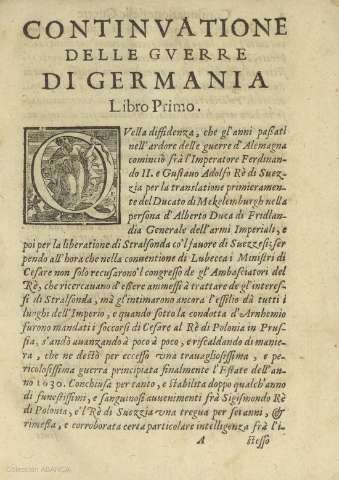 CONTINVATIONE
DELLE GVERRE
DI GERMANIA
Libro Primo.
QVella diffidenza, che gl'anni paſſati
nell'ardore delle guerre d'Alemagna
cominciò frà l'Imperatore Ferdinan-
do II. e Guſtauo Adolfo Rè di Suez-
zia per la translatione primieramen-
te del Ducato di Mekelenburgh nella
perſona d'Alberto Duca di Fridlan-
dia Generale dell'armi Imperiali, e
poi per la liberatione di Stralſonda co'l fauore di Suezzeſi; ſer
pendo all'hora che nella conuentione di Lubecca i Miniſtri di
Ceſare non ſolo recuſarono'l congreſſo de gl'Ambaſciatori del
Rè, che ricercauano d'eſſere ammeſſi à trattare de gl'intereſ-
ſi di Stralſonda, mà gl'intimarono ancora l'eſſilio dà tutti i
luoghi dell'Imperio, e quando ſotto la condotta d'Arnhemio
furono mandati i ſoccorſi di Ceſare al Rè di Polonia in Pruſ-
ſia, s'andò auanzando à poco à poco, e riſcaldando di manie-
ra, che ne deſtò per ecceſſo vna trauaglioſiſſima, e pe-
ricoloſiſſima guerra principiata finalmente l'Eſtate dell'an-
no 1630. Concluſa per tanto, e ſtabilita doppo qualch'anno
di funeſtiſſimi, e ſanguinoſi auuenimenti frà Sigiſmondo Rè
di Polonia, e'l Rè di Suezzia vna tregua per ſei anni, &
rimeſſa, e corroborata certa particolare intelligenza frà l'i-
A ſteſſo
Colección ABANCA